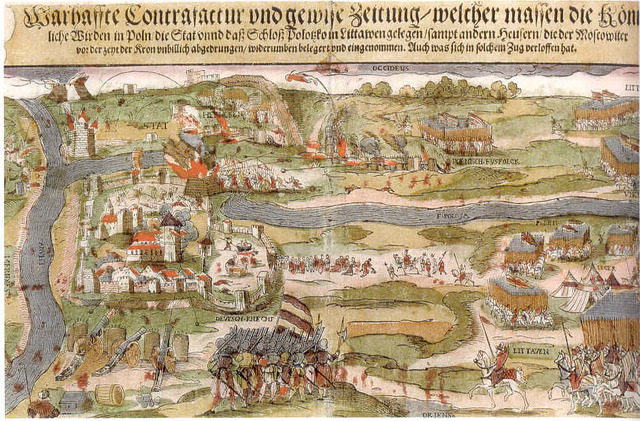 Warhaffte Contrafactur vnd gewise Zeitung/ welcher massen die Kön
liche Wirden in Poln die Stat vnnd daß Schloß Polotzko in Littawen gelegen/ sampt andern Heusern/ die der Moscowiter
vor der zeyt der Kron vnbillich abgedrungen/ widerumben belegert vnd eingenommen. Auch was sich in solchem Zug verloffen hat.
OCCIDENS
LITT
STAT
POLNISCH FVSVOLCK
DEVTSCH KNECHT
LITTAVEN
ORIENS